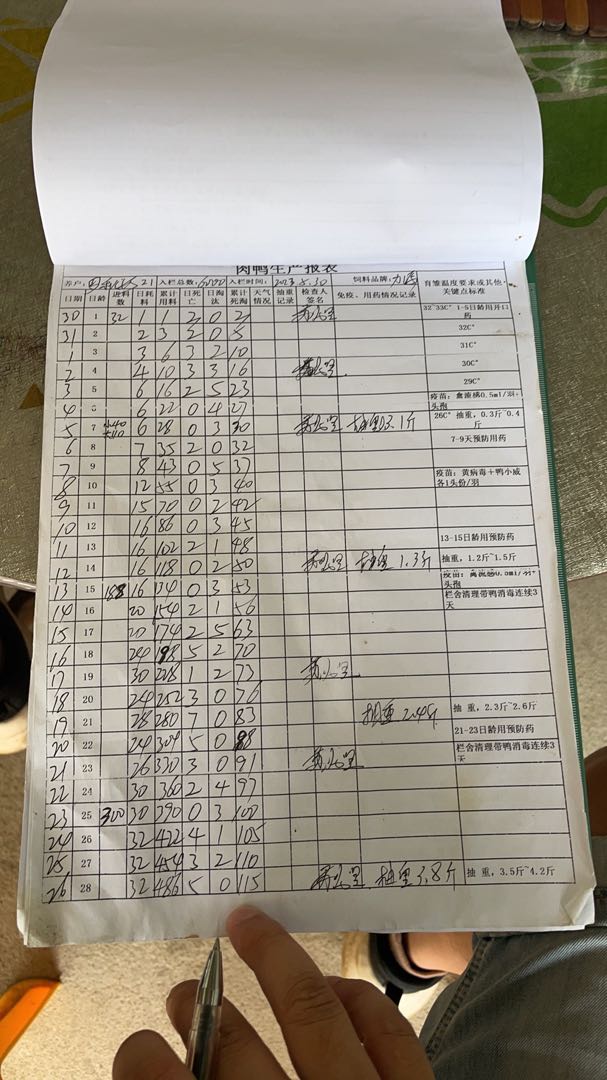 肉鸭生产报表
养户: 21 入栏总数:6000 入栏时间: 2023.5.30 饲料品牌:
日期 日龄 进料数 日耗料 累计用料 日死亡 日淘汰 累计死淘 天气情况 抽重记录 检查人签名 免疫、用药情况记录 育雏温度要求或其他关键点标准
30 1 32 1 1 2 0 2 32~33C° 1-5日龄用开口药
31 2 2 3 3 0 5 32C°
1 3 3 6 3 2 10 31C°
2 4 4 10 3 3 16 30C°
3 5 6 16 2 5 23 29C°
4 6 6 22 0 4 27 疫苗:禽流感0.5ml/羽·头孢
5 7 6 28 0 3 30 抽重0.31斤 26C° 抽重,0.3斤~0.4斤
6 8 7 35 2 0 32 7-9天预防用药
7 9 8 43 0 5 37
8 10 12 55 0 3 40 疫苗:黄病毒+鸭小威各1头份/羽
9 11 15 70 0 2 42
10 12 16 86 0 3 45
11 13 16 102 2 1 48 13-15日龄用预防药
12 14 16 118 0 2 50 抽重 1.3斤 抽重,1.2斤~1.5斤
13 15 188 16 134 0 3 53 疫苗:禽流感0.5ml/羽+头孢
14 16 20 154 2 1 56 栏舍清理带鸭消毒连续3天
15 17 20 174 2 5 63
16 18 24 198 5 2 70
17 19 30 228 1 2 73
18 20 24 252 3 0 76
19 21 28 280 7 0 83 抽重 2.4斤 抽重,2.3斤~2.6斤
20 22 24 304 5 0 88 21-23日龄用预防药
21 23 26 330 3 0 91 栏舍清理带鸭消毒连续3天
22 24 30 360 2 4 97
23 25 300 30 390 0 3 100
24 26 32 422 4 1 105
25 27 32 454 3 2 110
26 28 32 486 5 0 115 抽重3.8斤 抽重,3.5斤~4.2斤